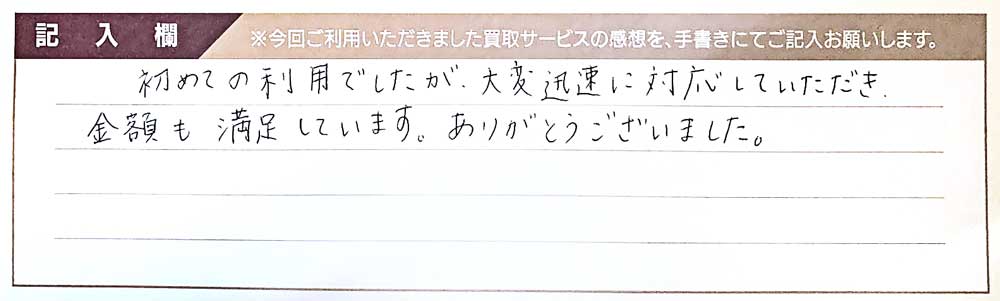 記入欄 ※今回ご利用いただきました買取サービスの感想を、手書きにてご記入お願いします。
初めての利用でしたが、大変迅速に対応していただき、
金額も満足しています。ありがとうございました。